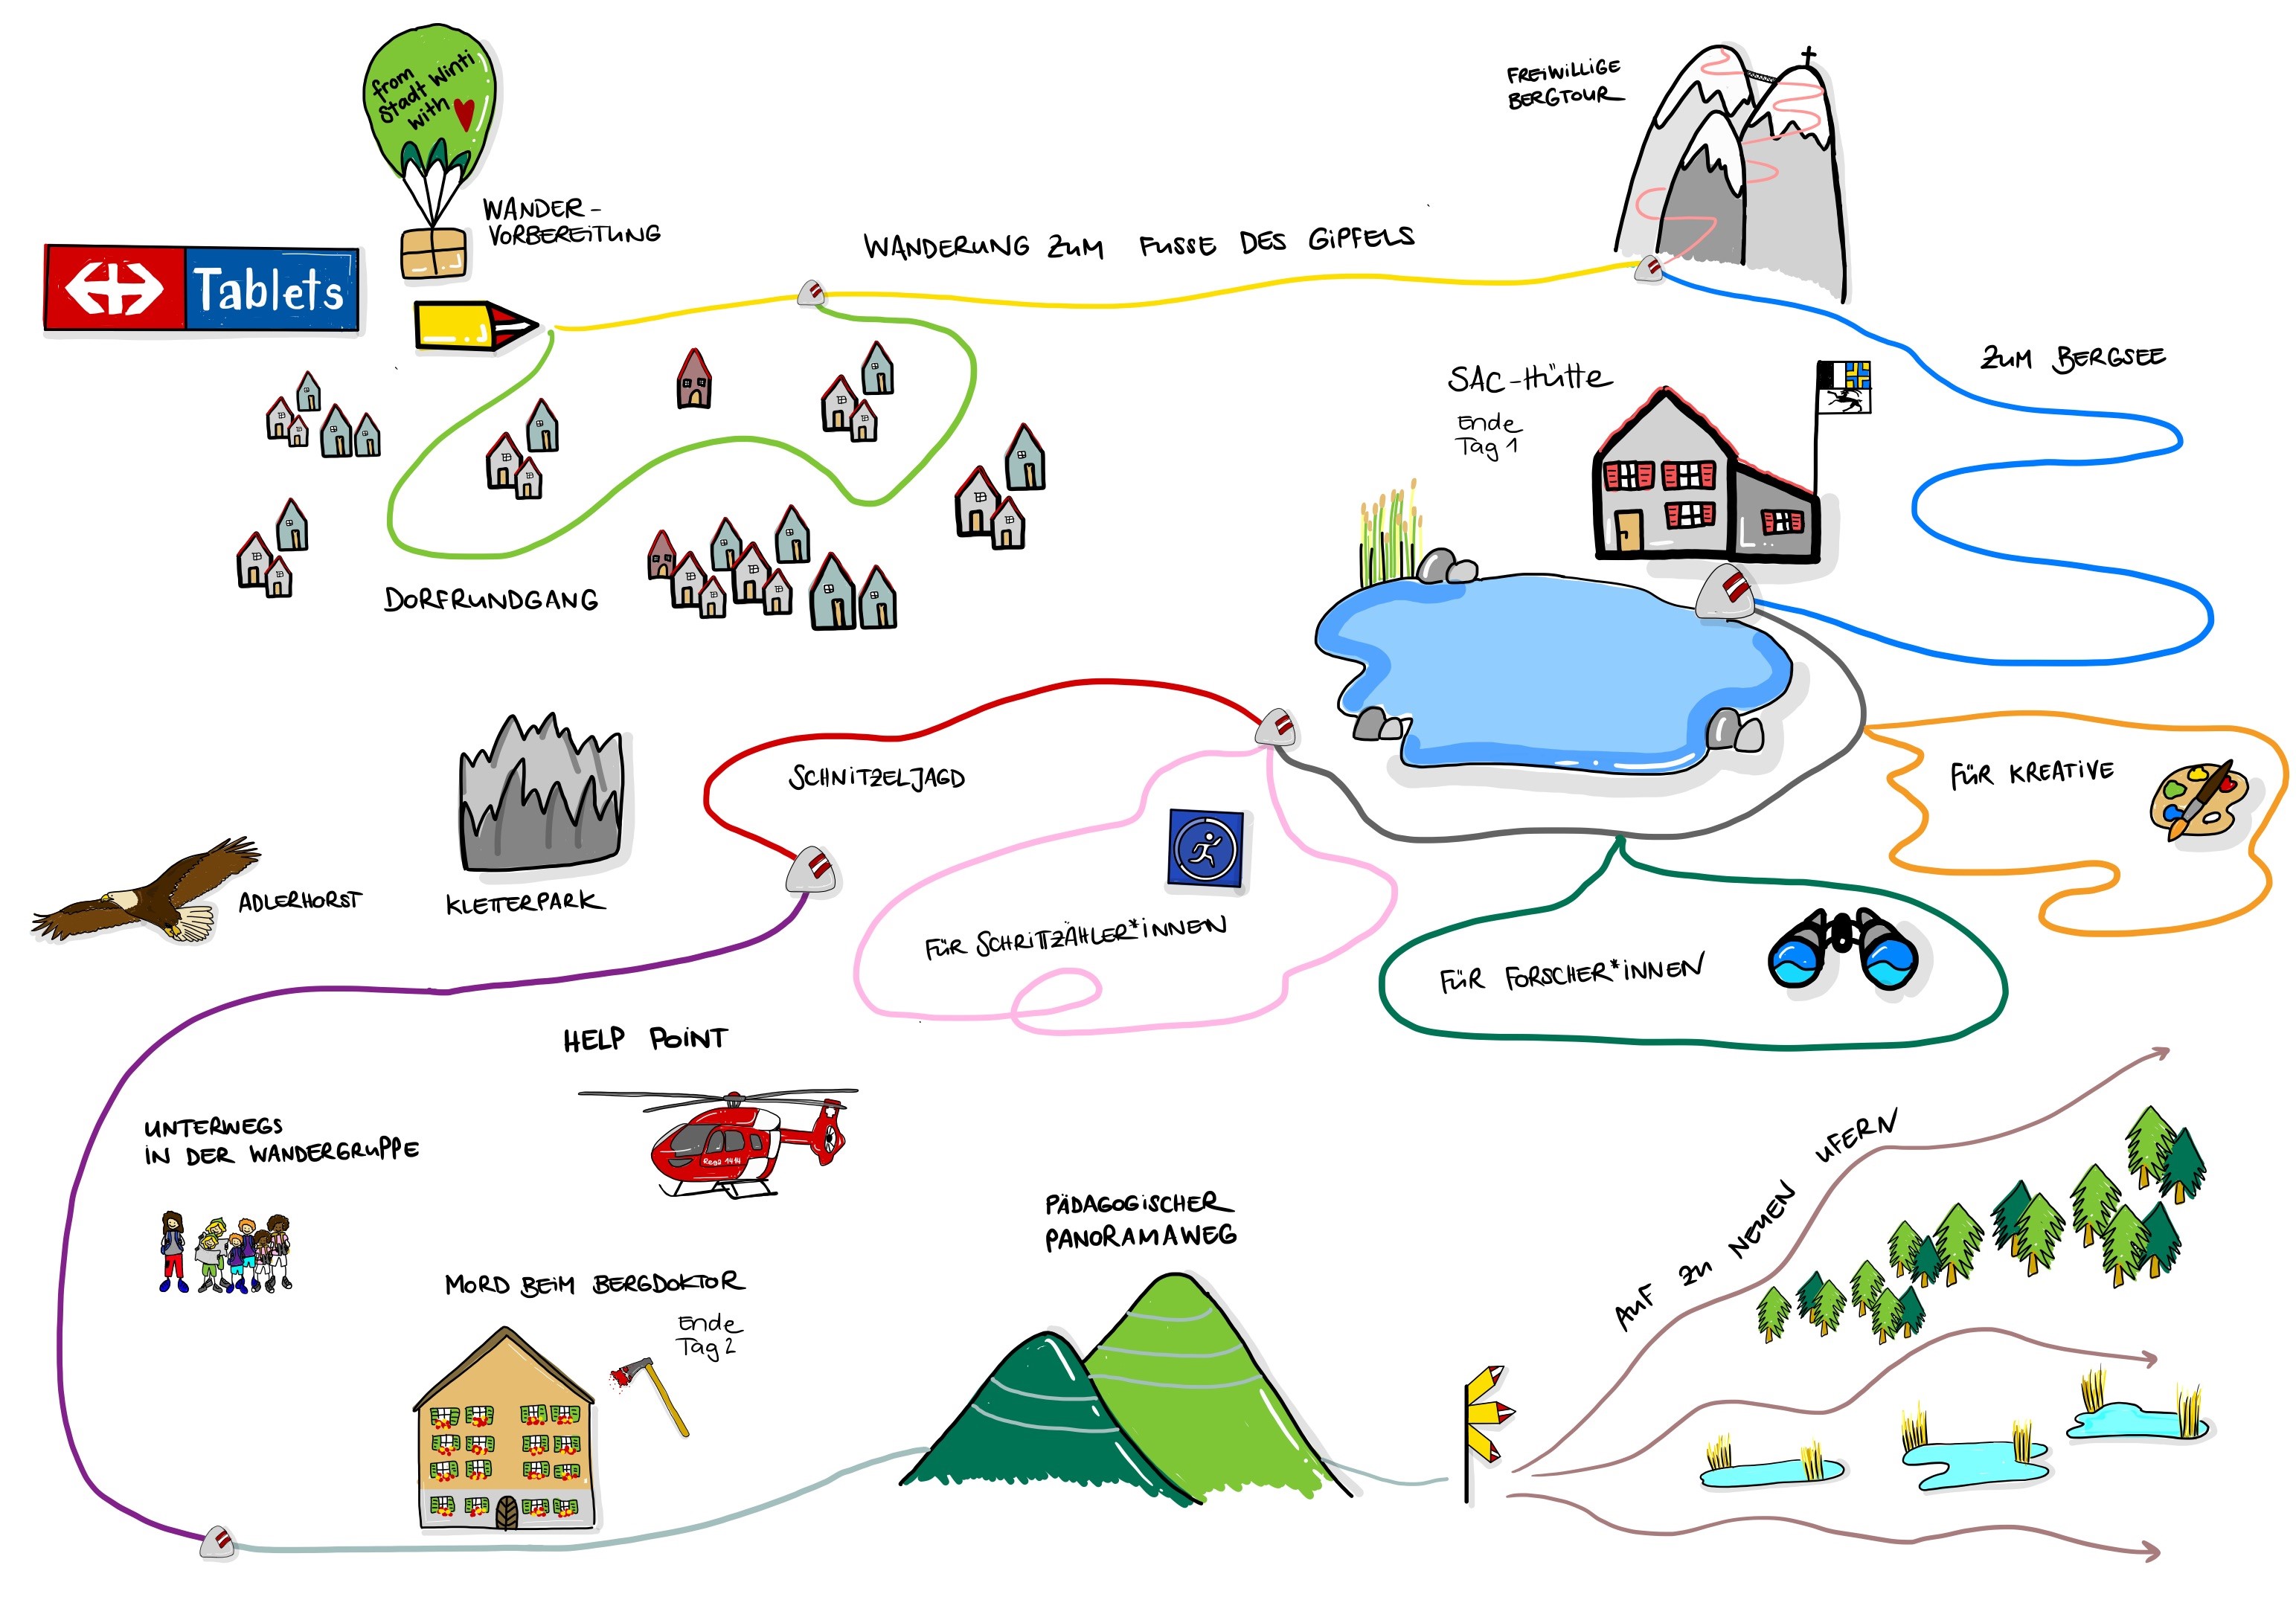 from
Stadt Winti
with
WANDER-
VORBEREITUNG
Tablets
WANDERUNG ZUM FUSSE DES GIPFELS
FREIWILLIGE
BERGTOUR
ZUM BERGSEE
SAC-Hütte
Ende
Tag 1
DORFRUNDGANG
SCHNITZELJAGD
FÜR KREATIVE
ADLERHORST
KLETTERPARK
FÜR SCHRITTZÄHLER*INNEN
FÜR FORSCHER*INNEN
HELP POINT
Rega 1414
UNTERWEGS
IN DER WANDERGRUPPE
PÄDAGOGISCHER
PANORAMAWEG
MORD BEIM BERGDOKTOR
Ende
Tag 2
AUF ZU NEUEN UFERN